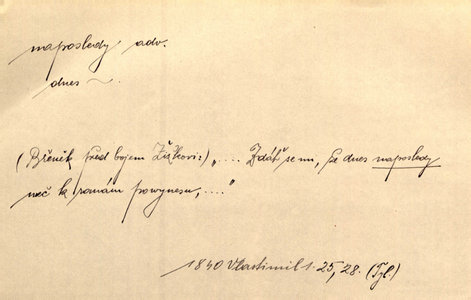 naposledy adv.
dnes ~.
(Břeněk před bojem Žižkovi:) „.... Zdáť se mi, že dnes naposledy
meč k ranám powynesu, ....“
1840 Vlastimil 1. 25, 28. (Tyl.)